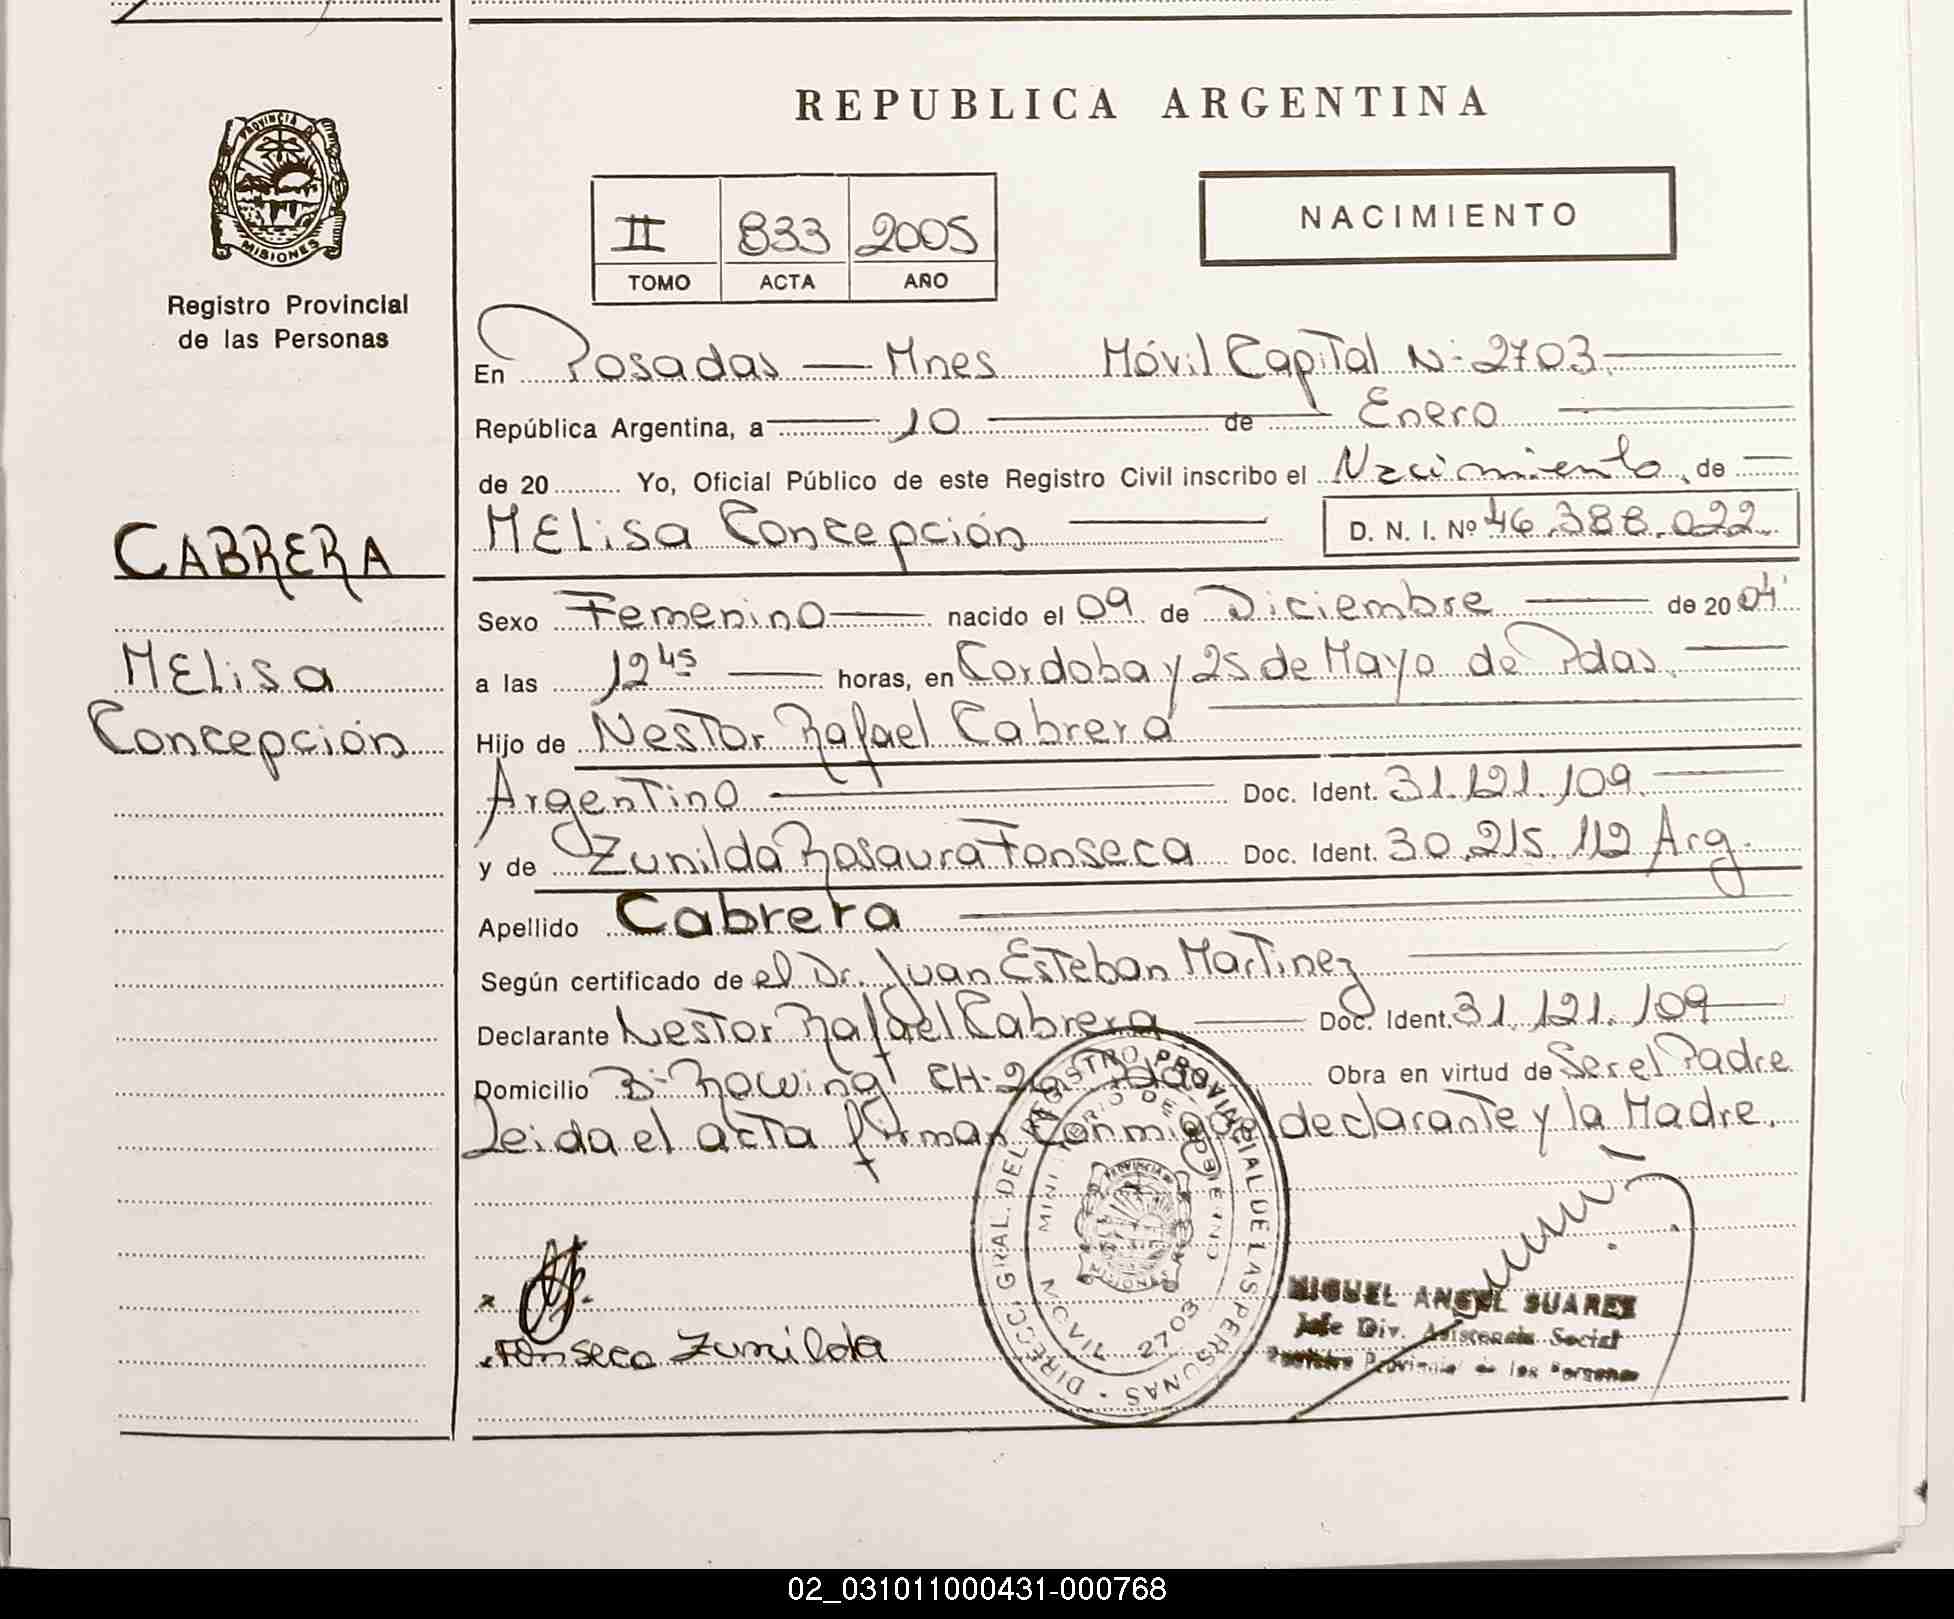 REPUBLICA ARGENTINA
PROVINCIA D
MISIONES
Registro Provincial
de las Personas
II 833 2005
TOMO ACTA AÑO
NACIMIENTO
En Posadas — Mnes Móvil Capital Nº 2703.
República Argentina, a 10 de Enero
de 20 Yo, Oficial Público de este Registro Civil inscribo el Nacimiento de
Melisa Concepción D. N. I. Nº 46.388.022
CABRERA
Melisa
Concepción
Sexo Femenino nacido el 09 de Diciembre de 2004
a las 12 45 horas, en Cordoba y 25 de Mayo de Pdas.
Hijo de Nestor Rafael Cabrera
Argentino Doc. Ident. 31.121.109
y de Zunilda Rosaura Fonseca Doc. Ident. 30.215.112 Arg.
Apellido Cabrera
Según certificado de el Dr. Juan Esteban Martinez
Declarante Nestor Rafael Cabrera Doc. Ident. 31.121.109
Domicilio Bº Rowing CH-2 Obra en virtud de Ser el Padre
Leida el acta firman conmigo el declarante y la Madre.
DIRECC. GRAL. DEL REGISTRO PROVINCIAL DE LAS PERSONAS
MINISTERIO DE GOBIERNO
MOVIL 2703
Fonseca Zunilda
MIGUEL ANGEL SUAREZ
Jefe Div. Asistencia Social
Registro Provincial de las Personas
02_031011000431-000768